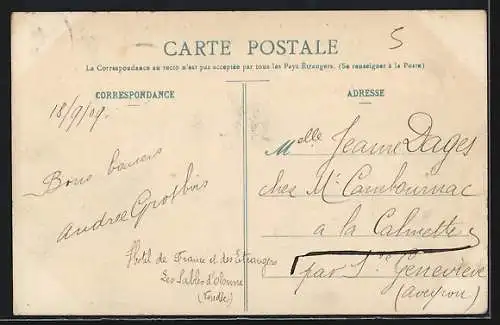 5
CARTE POSTALE
La Correspondance au recto n'est pas acceptée par tous les Pays Étrangers. (Se renseigner à la Poste)
CORRESPONDANCE
18/9/09.
Bons baisers
Andrée Grosbois
Hôtel de France et des Étrangers
Les Sables d'Olonne
(Vendée)
ADRESSE
Melle Jeanne Dages
chez Mr Cambournac
à la Calmette
par Ste Geneviève
(Aveyron)